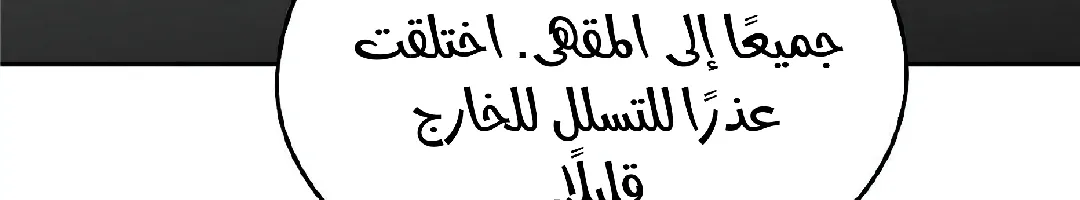 جميعًا إلى المقهى. اختلقت
عذرًا للتسلل للخارج
قليلًا.